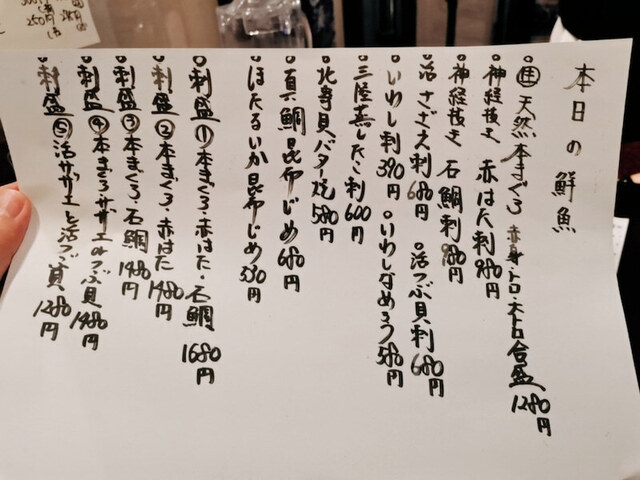 本日の鮮魚
○生 天然本まぐろ 赤身・トロ・大トロ合盛 1280円
○神経抜き 赤はた刺 980円
○神経抜き 石鯛刺 980円
○活さざえ刺 680円 ○活つぶ貝刺 680円
○いわし刺 390円 ○いわしなめろう 580円
○三陸蒸したこ刺 600円
○北寄貝バター焼 580円
○真鯛昆布じめ 680円
○ほたるいか昆布じめ 530円
○刺盛① 本まぐろ・赤はた・石鯛 1680円
○刺盛② 本まぐろ・赤はた 1480円
○刺盛③ 本まぐろ・石鯛 1480円
○刺盛④ 本まぐろ・サザエorつぶ貝 1480円
○刺盛⑤ 活サザエと活つぶ貝 1280円
250円